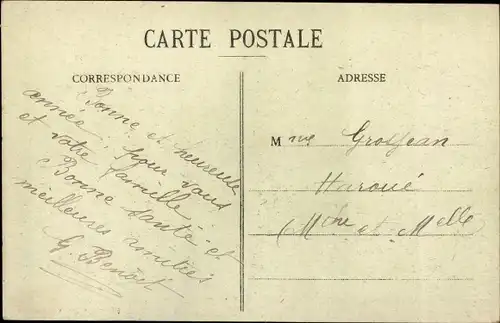 CARTE POSTALE
CORRESPONDANCE
Bonne et heureuse
année, pour vous
et votre famille
Bonne santé et
meilleures amitiés
G. Benoit
ADRESSE
Mme Grosjean
Haroué
(Mthe et Melle